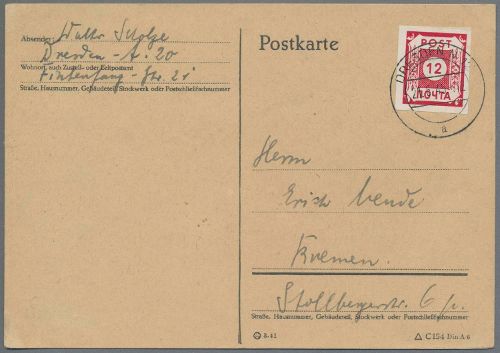 Absender: Walter Scholze
Dresden - A. 20
Wohnort, auch Zustell- oder Leitpostamt
Straße, Hausnummer, Gebäudeteil, Stockwerk oder Postschließfachnummer
Postkarte
POST
12
ПОЧТА
DRESDEN
a
Herrn
Erich Wende
Stollbergerstr. 6
Straße, Hausnummer, Gebäudeteil, Stockwerk oder Postschließfachnummer
8.41
C 154 Din A 6